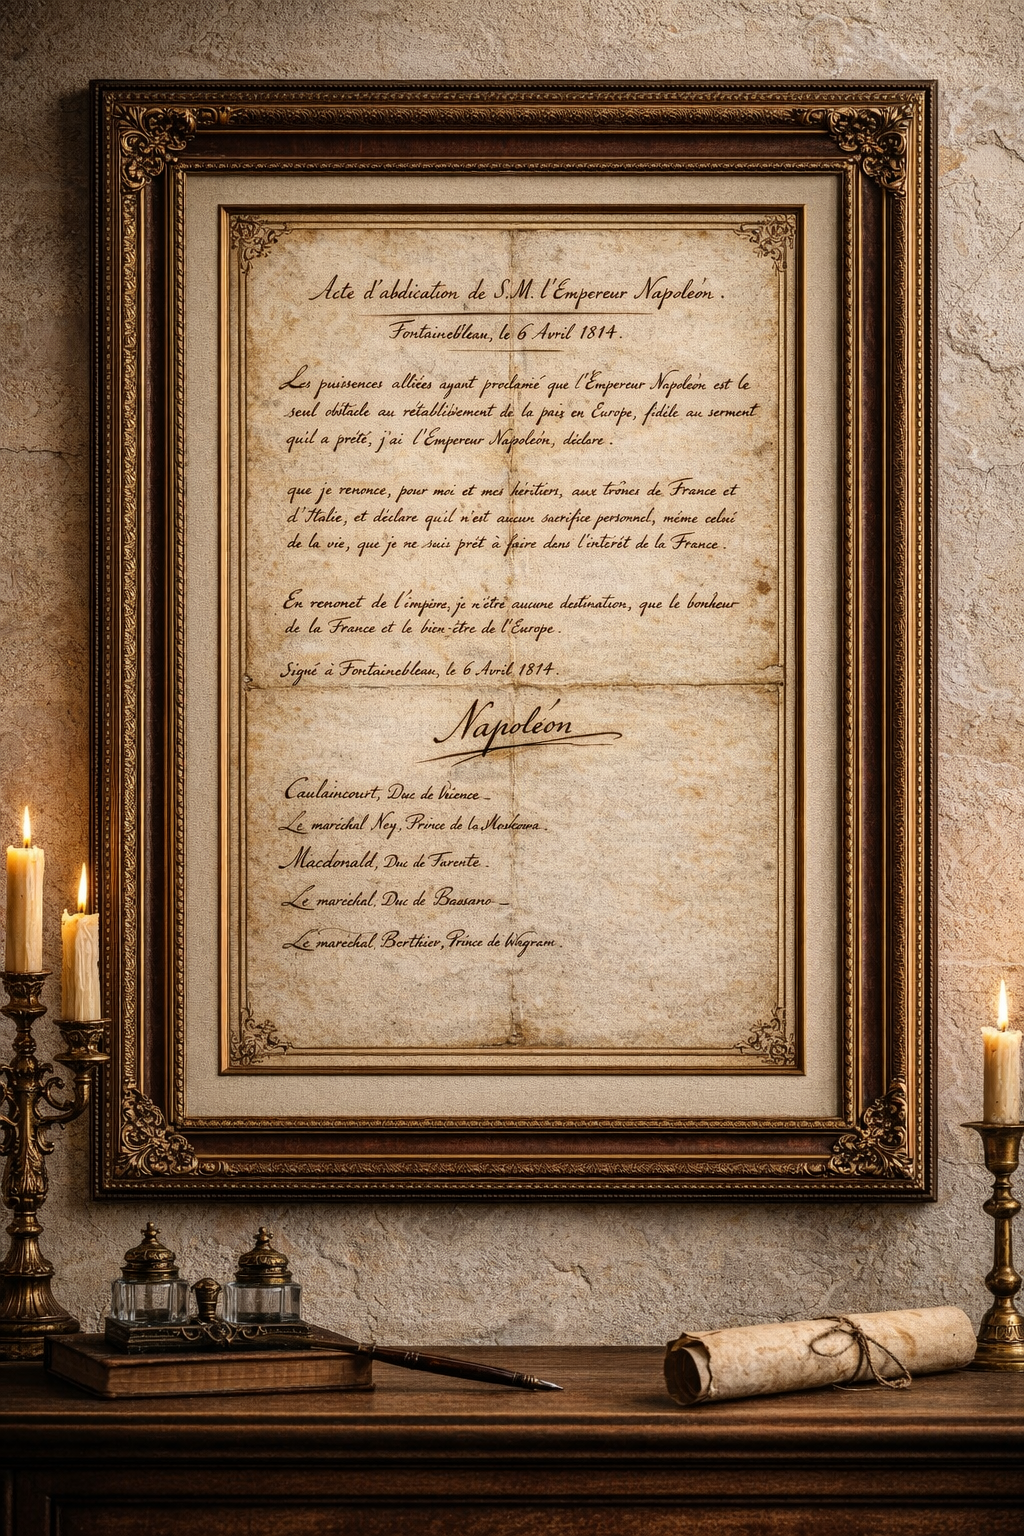 Acte d'abdication de S.M. l'Empereur Napoleón.
Fontainebleau, le 6 Avril 1814.
Les puissences alliées ayant proclamé que l'Empereur Napoleón est le
seul obstacle au rétablibement de la paix en Europe, fidéle au serment
qu'il a prété, j'ai l'Empereur Napoleón, déclare.
que je renonce, pour moi et mes héritiers, aux trônes de France et
d'Italie, et déclare qu'il n'est aucun sacrifice personnel, méme celui
de la vie, que je ne suis prét à faire dans l'interét de la France.
En renonet de l'impire, je n'étre aucune destination, que le bonheur
de la France et le bien-étre de l'Europe.
Signé à Fontainebleau, le 6 Avril 1814.
Napoléon
Caulaincourt, Duc de Vicence
Le maréchal Ney, Prince de la Moskowa.
Macdonald, Duc de Tarente.
Le maréchal, Duc de Bassano
Le maréchal, Berthier, Prince de Wagram.